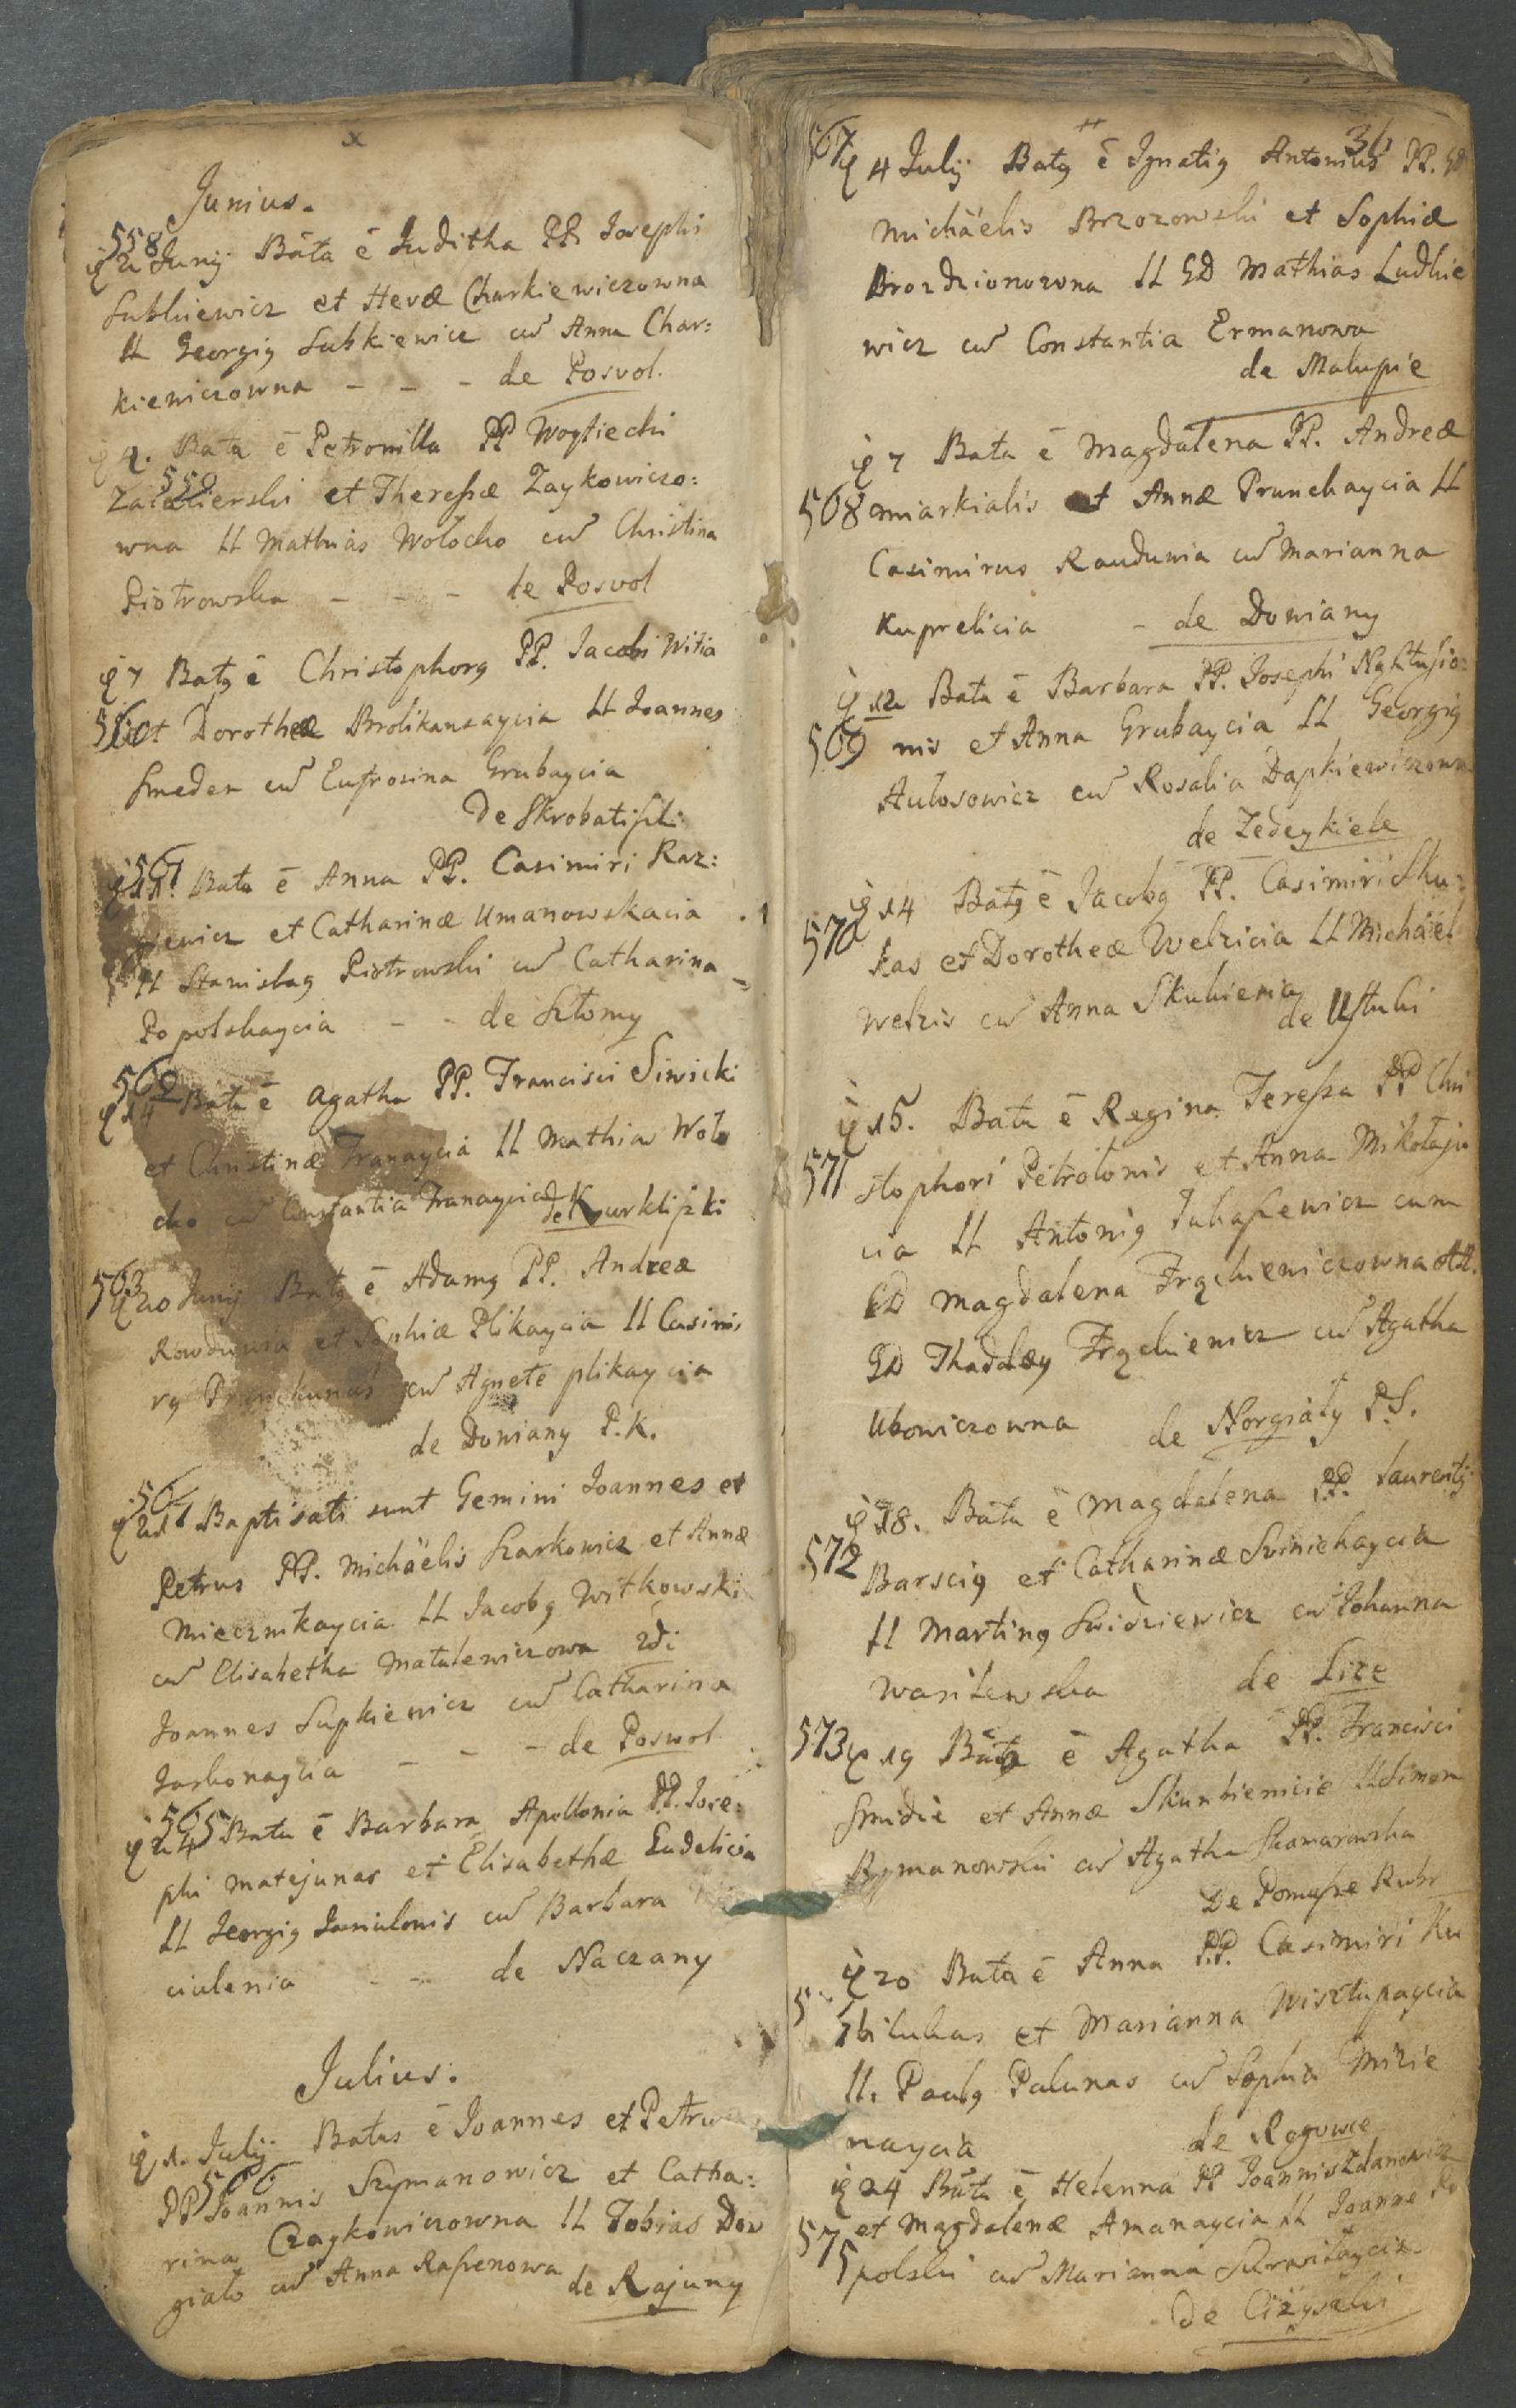 x
Junius.
558
2 Junÿ Bāta ē Juditha PP. Josephi
Subkiewicz et Hevæ Charkiewiczowna
LL Georgiꝰ Subkiewicz cū Anna Char:
kiewiczowna - - - de Posvol.
4. Bata ē Petronilla PP Woytiechi
559
et Theressæ Zaykowiczo:
wna LL Mathias Wołocho cū Christina
Piotrowska - - - de Posvol
7 Batꝰ ē Christophorꝰ PP. Jacobi Witia
560 et Dorotheæ Brolikansaycia LL Joannes
Smeder cū Eufrosina Grubaycia
De Skrobatiszk:
561
Bata ē Anna PP. Casimiri Raz:
iewicz et Catharinæ Umanowskacia
LL Stanislaꝰ Piotrowski cū Catharina
Popolskaycia - - de Szłomy
562
14 Bata ē Agatha PP. Francisci Siwicki
et Christinæ Franaycia LL Mathias Woło
cho cū Constantia Franaycia de Kurkliszki
563
20 Junÿ Batꝰ ē Adamꝰ PP. Andreæ
Rowdunia et Sophiæ Plikaycia LL Casimi,
rꝰ cū Agnete plikaycia
de Doniany P.K.
564
21 Baptisati sunt Gemini Joannes et
Petrus PP. Michäelis Szarkowicz et Annæ
Miecznikaycia LL Jacobꝰ Witkowski
cū Elisabetha Matulewiczowa 2di
Joannes Supkiewicz cū Catharina
Jasbonaycia - - - de Poswol
565
24 Bata ē Barbara Apollonia PP. Jose:
phi Matejunas et Elisabethæ Gudelicia
LL Georgiꝰ Janiulonis cū Barbara
ciulenia - - de Naczany
Julius.
1. Julÿ Batus ē Joannes et Petrus
566
PP Joannis Szymanowicz et Catha:
rina Czaykowiczowna LL Tobias Dow
giało cū Anna Raszenowa
de Rajuny
36
567
4 Julÿ Batꝰ ē Ignatiꝰ Antonius PP. GD
Michäelis Brzozowski et Sophiæ
Brozdzionowna LL GD Mathias Ludkie
wicz cū Constantia Ermanowa
de Malupie
7 Bata ē Magdalena PP. Andreæ
568 miarkialis et Annæ Prunckaycia LL
Casimirus Raudunia cū Marianna
Kuprelicia - de Doniany
12 Bata ē Barbara PP. Josephi
569 nis et Anna Grubaycia LL Georgiꝰ
Aułosowicz cū Rosalia Dapkiewiczowna
de Zedeykiele
14 Batꝰ ē Jacobꝰ PP. Casimiri Sku:
570
kas et Dorotheæ Welzicia LL Michäel
Welzis cū Anna Skukienia
de Ustuki
15. Bata ē Regina Teressa PP Chri
571 stophori Petrolonis et Anna Mikołaju
cia LL Antoniꝰ Juhaszewicz cum
GD Magdalena Frąckiewiczowna Ast.
GD Thaddæꝰ Frąckiewicz cū Agatha
Ubowiczowna de Norgiały P.S.
18. Bata ē Magdalena PP. Laurentÿ
572
Barsciꝰ et Catharinæ Swinickaycia
LL Martinꝰ Swidziewicz cū Johanna
Wasilewska de Size
573 19 Bata ē Agatha PP. Francisci
Smidie et Annæ Skurkienicie LL Simon
Rymanowski cū Agatha Skomarowska
De Pomusze Rubr
20 Bata ē Anna PP. Casimiri Ku
bilukas et Marianna Wisztupaycia
LL. Paulꝰ Palunas cū Sophia Mizie
naycia de Rogowce
24 Bata ē Helenna PP Joannis Zdanowicz
575 et Magdalenæ Amanaycia LL Joanne Po
polski cū Marianna
De Ciżyszki